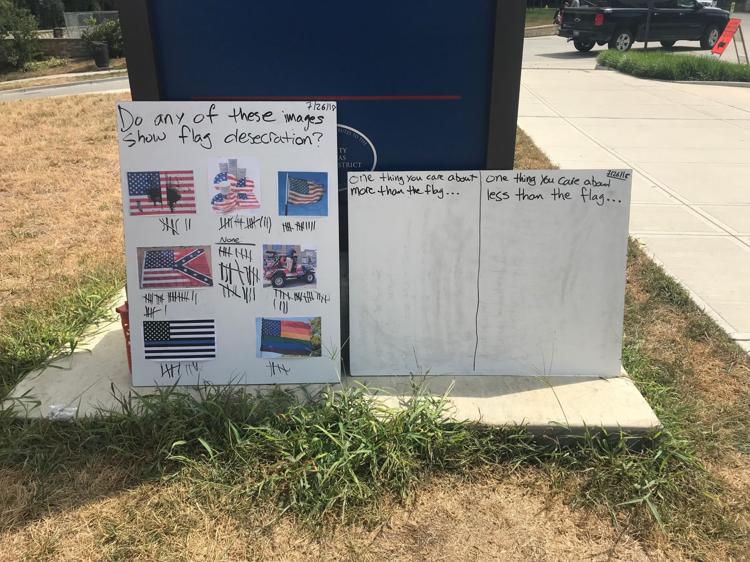 7/26/18
Do any of these images
show flag desecration?
None
one thing you care about
more than the flag...
7/26/18
one thing you care about
less than the flag...